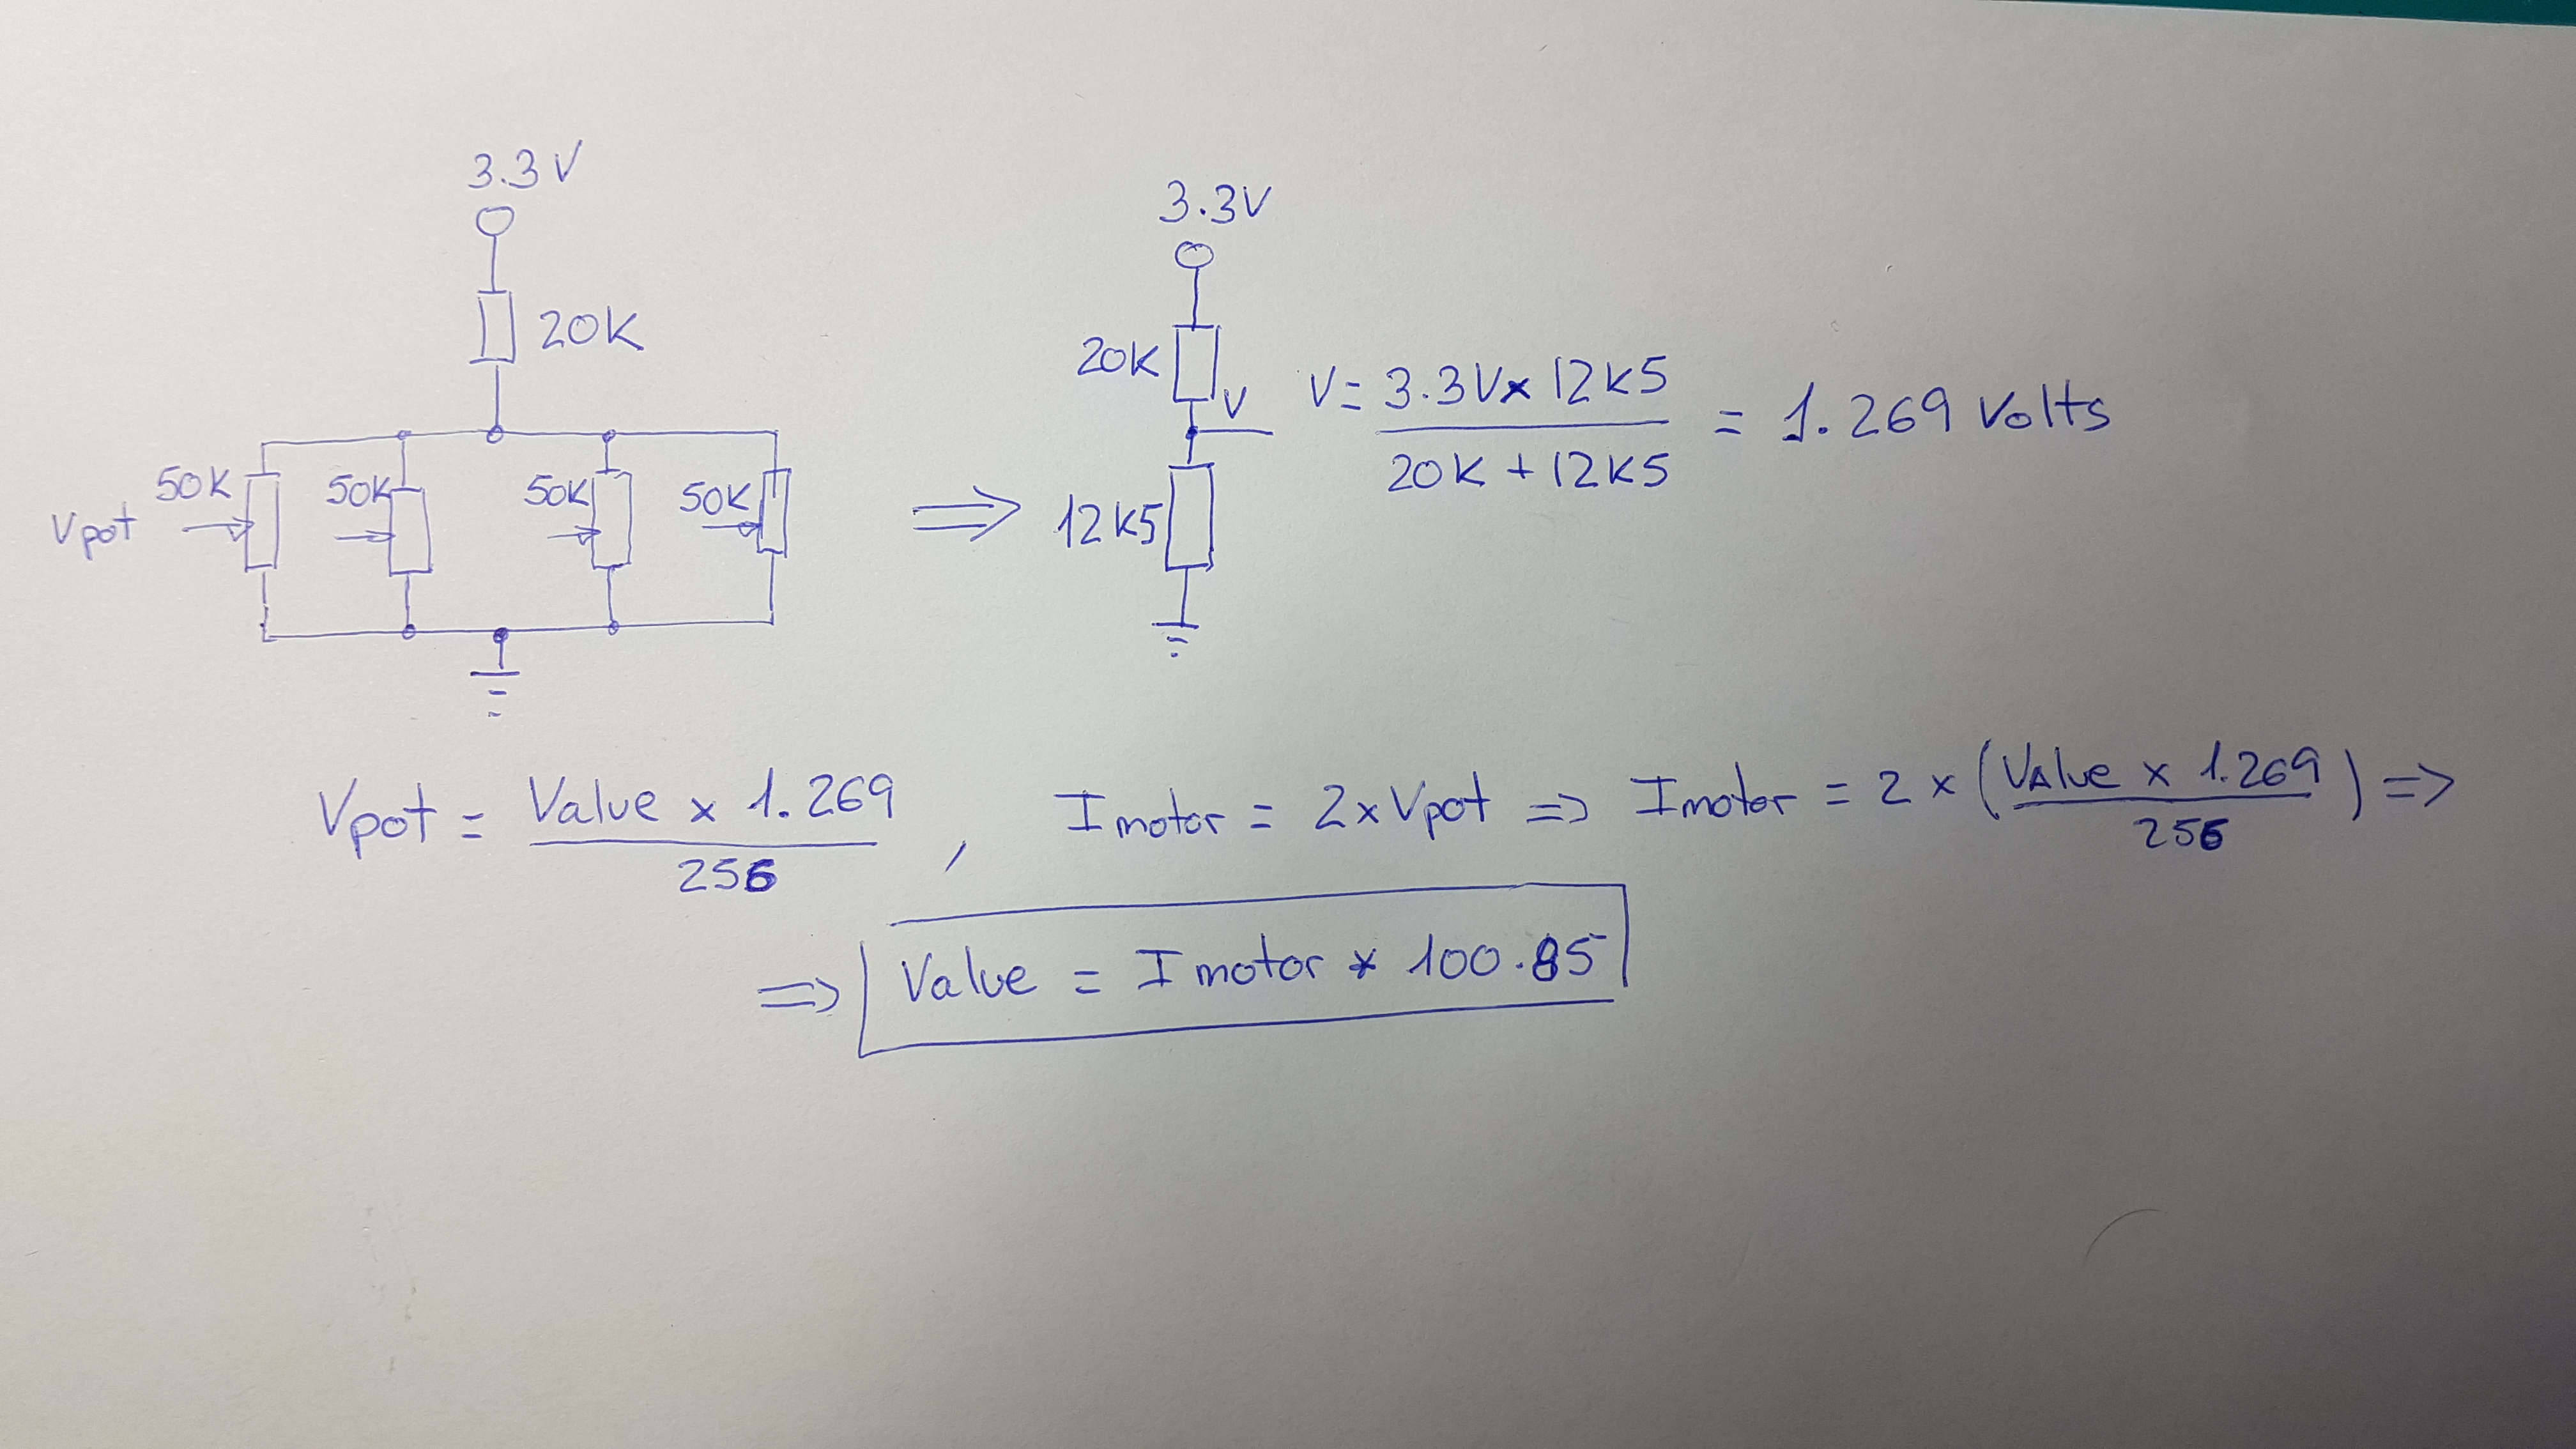 3.3V
20K
50K 50K 50K 50K
Vpot
3.3V
20K
V
12K5
V = 3.3V x 12K5 / 20K + 12K5 = 1.269 Volts
Vpot = Value x 1.269 / 256 , Imotor = 2 x Vpot => Imotor = 2 x (VAlue x 1.269 / 256) =>
=> Value = Imotor * 100.85